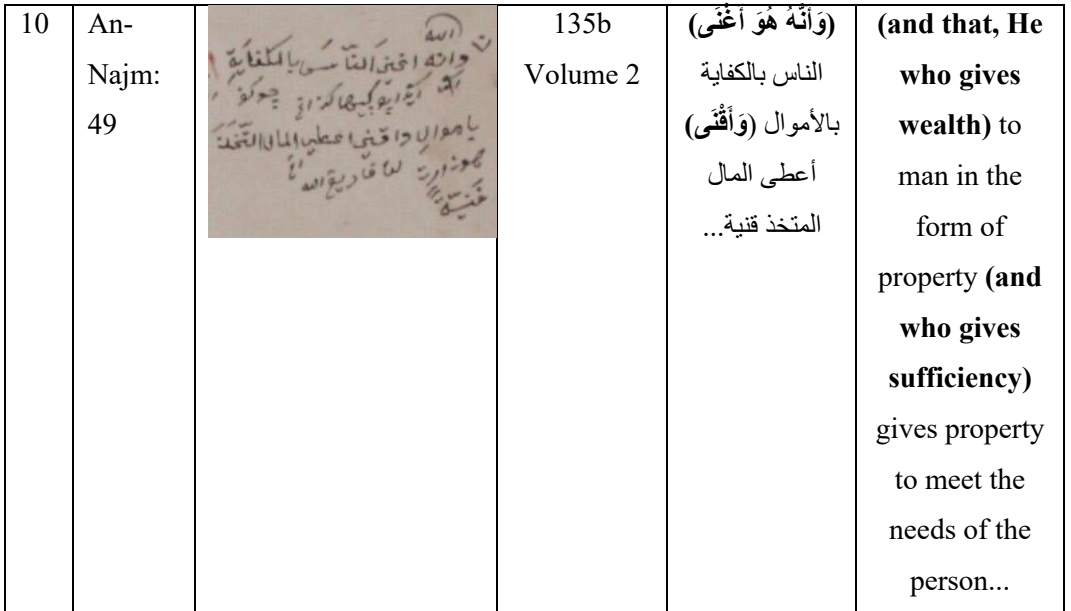 10
An-
Najm:
49
الله
وانه اغنى الناس بالكفاية
باموال واقنى اعطى المال المتخذ
قنية
135b
Volume 2
(وَأَنَّهُ هُوَ أَغْنَى)
الناس بالكفاية
بالأموال (وَأَقْنَى)
أعطى المال
المتخذ قنية...
(and that, He
who gives
wealth) to
man in the
form of
property (and
who gives
sufficiency)
gives property
to meet the
needs of the
person...